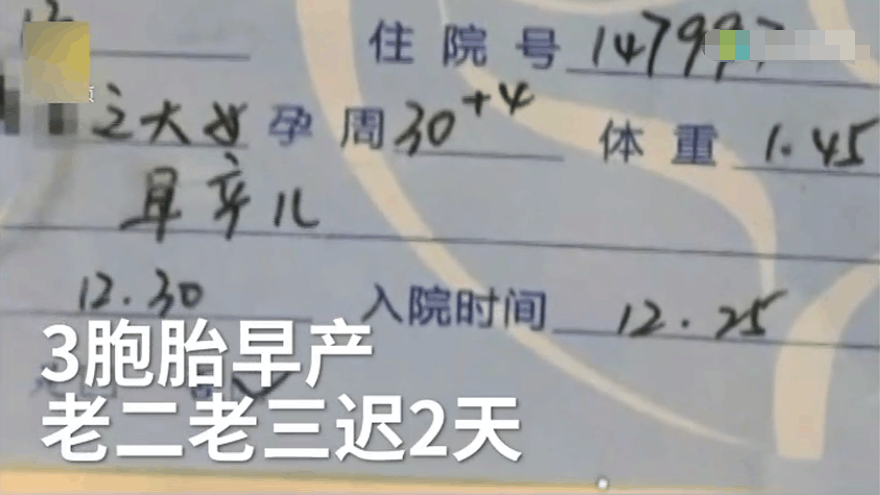 住院号 147997
之大女 孕周 30+4 体重 1.45
早产儿
12.30 入院时间 12.25
3胞胎早产
老二老三迟2天